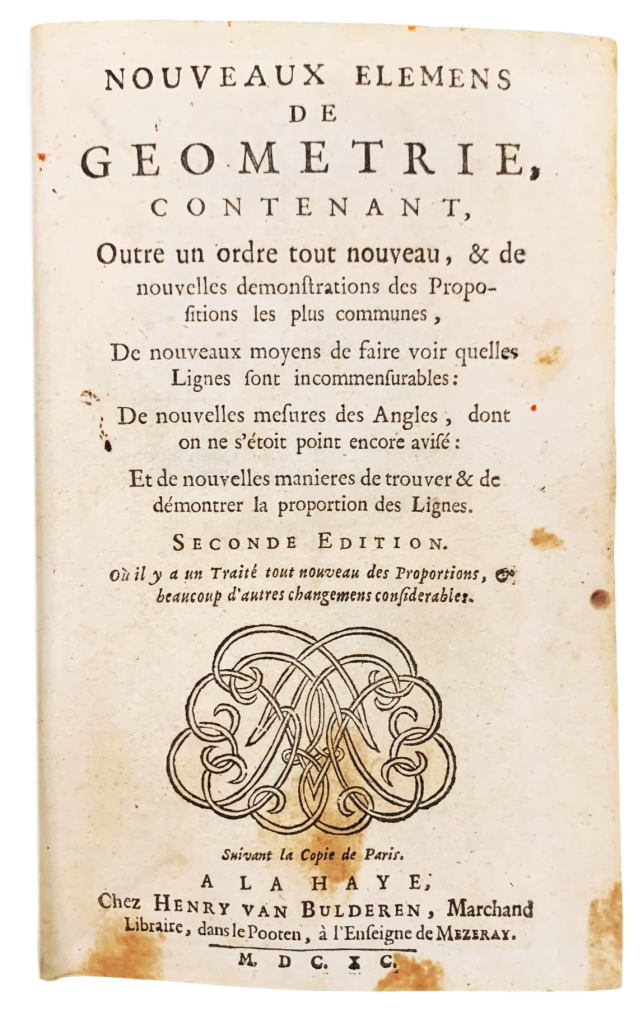 NOUVEAUX ELEMENS
DE
GEOMETRIE,
CONTENANT,
Outre un ordre tout nouveau, & de
nouvelles demonſtrations des Propo-
ſitions les plus communes,
De nouveaux moyens de faire voir quelles
Lignes ſont incommenſurables:
De nouvelles meſures des Angles, dont
on ne s'étoit point encore aviſé:
Et de nouvelles manieres de trouver & de
démontrer la proportion des Lignes.
SECONDE EDITION.
Où il y a un Traité tout nouveau des Proportions, &
beaucoup d'autres changemens conſiderables.
Suivant la Copie de Paris.
A LA HAYE,
Chez HENRY VAN BULDEREN, Marchand
Libraire, dans le Pooten, à l'Enſeigne de MEZERAY.
M. D C. X C.